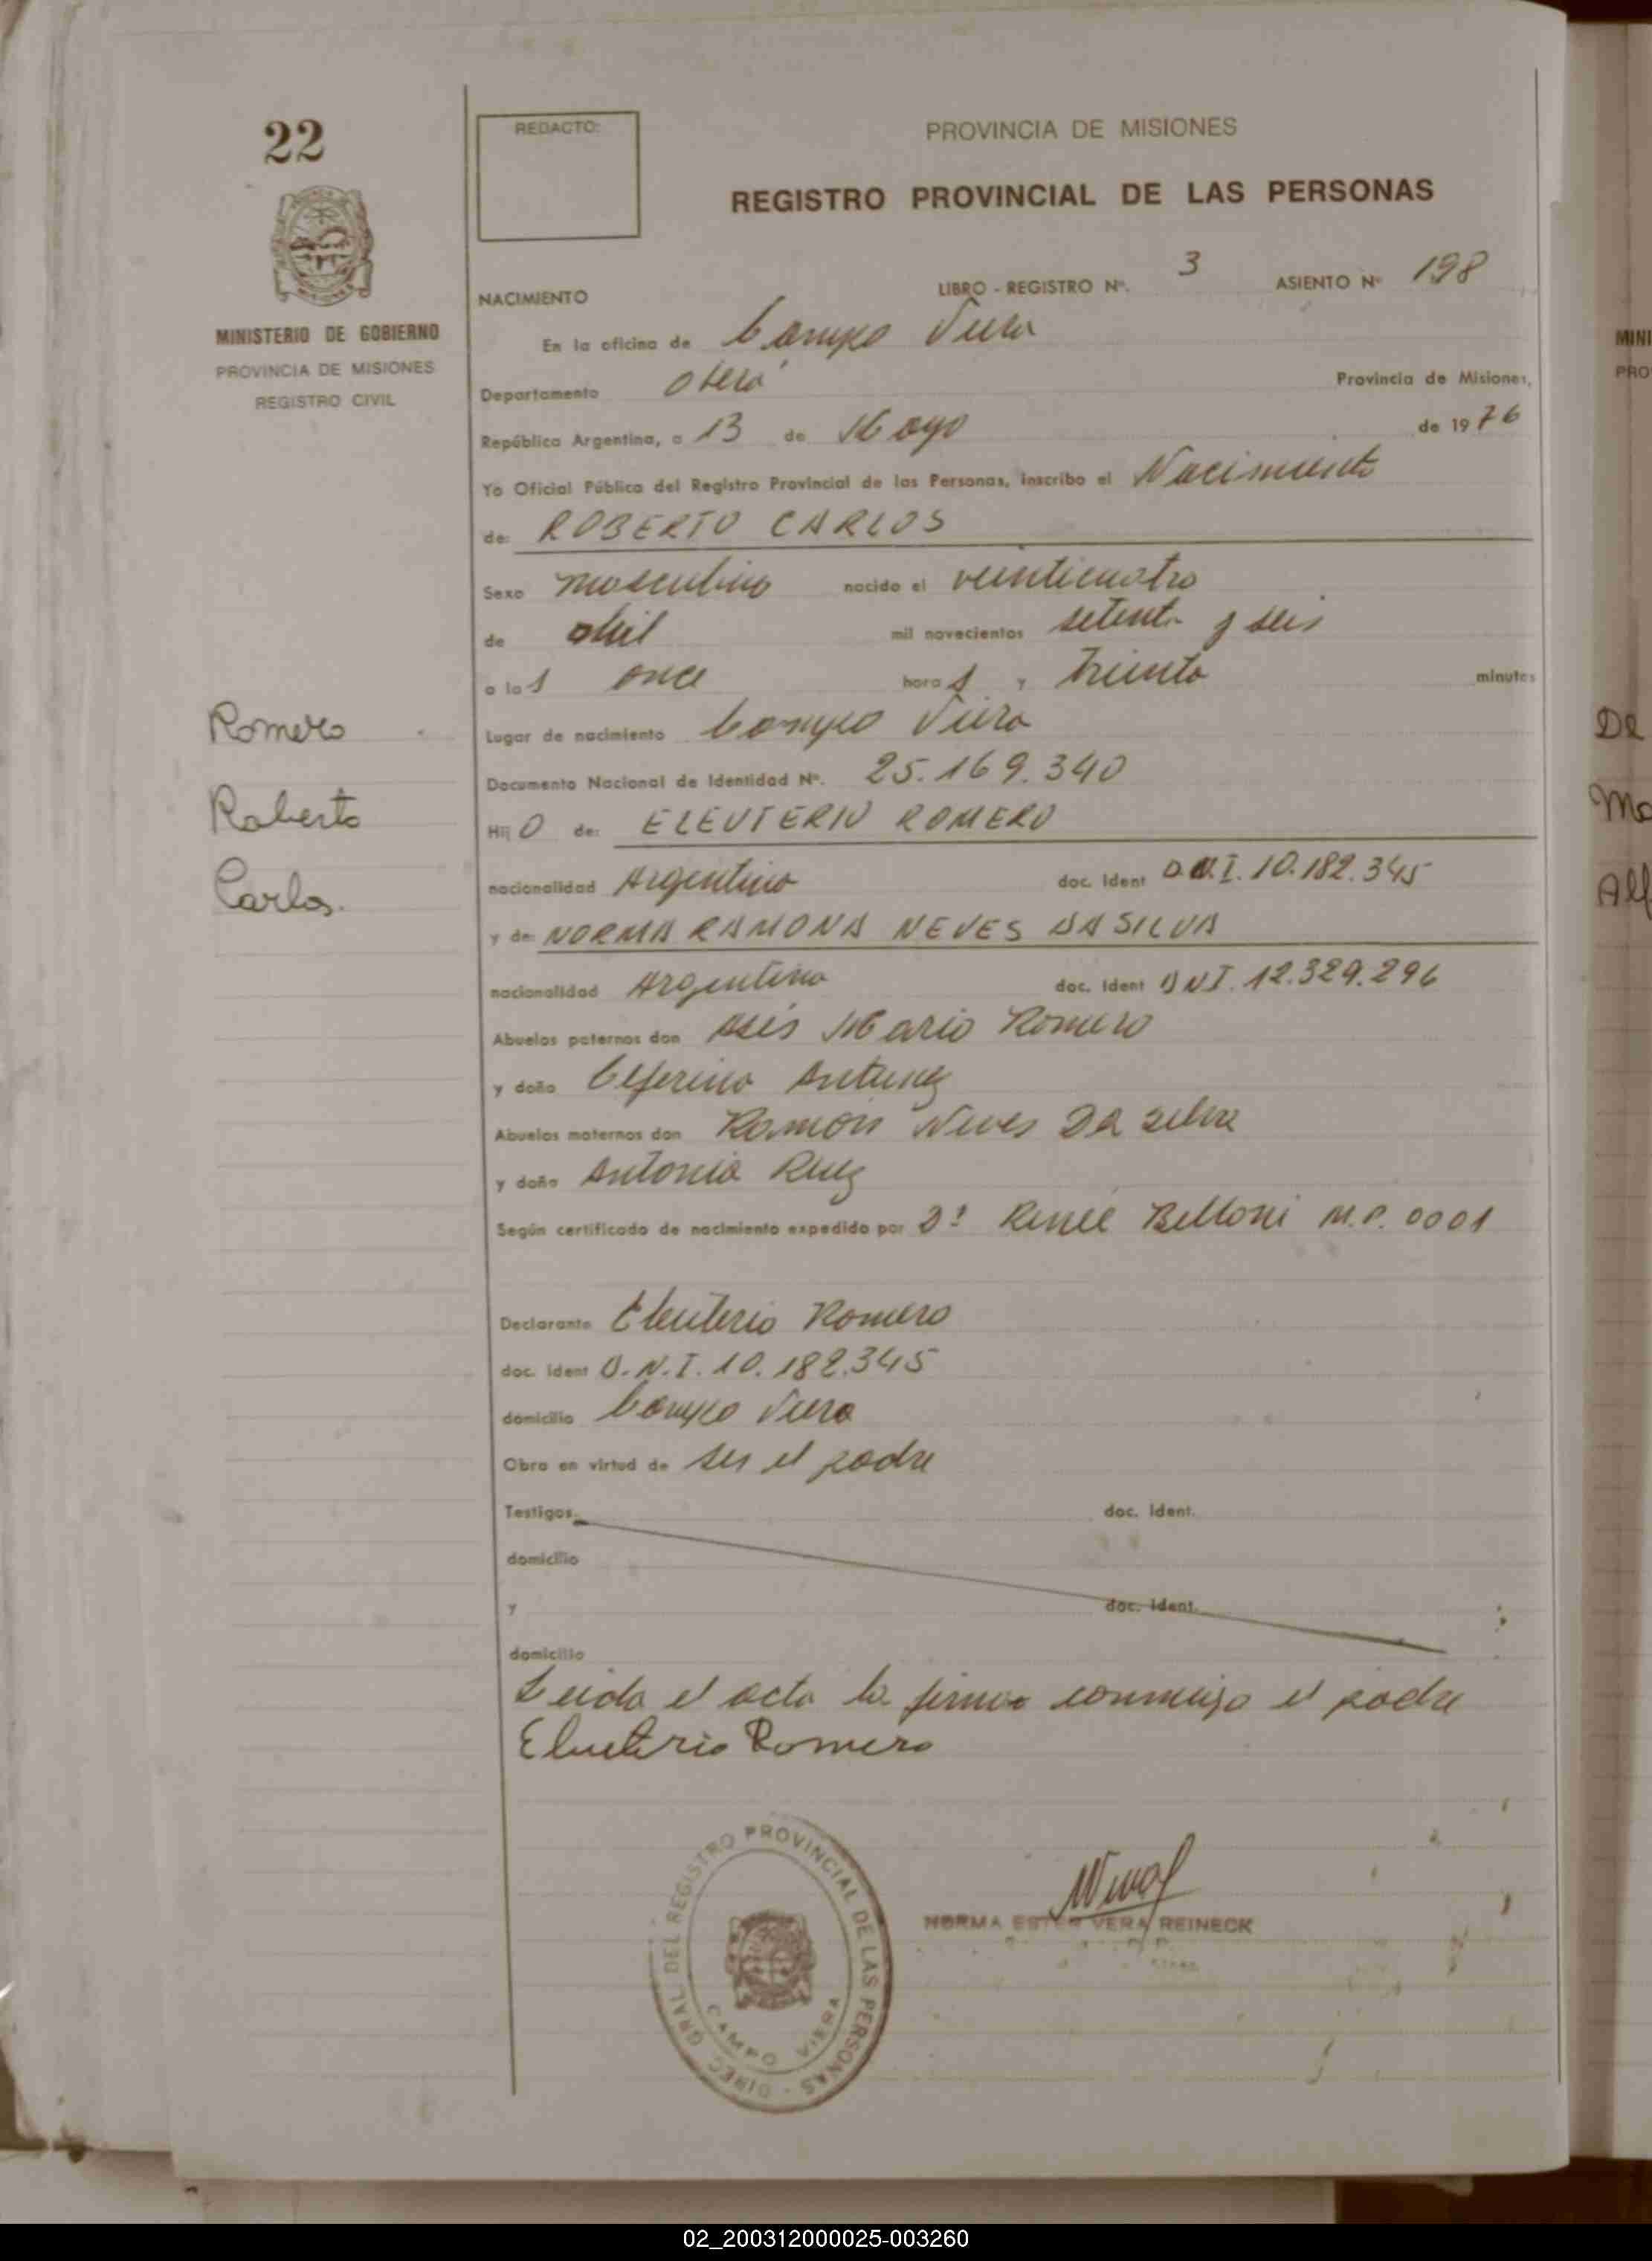 22
REDACTO:
PROVINCIA DE MISIONES
REGISTRO PROVINCIAL DE LAS PERSONAS
MINISTERIO DE GOBIERNO
PROVINCIA DE MISIONES
REGISTRO CIVIL
NACIMIENTO LIBRO - REGISTRO Nº. 3 ASIENTO Nº 198
En la oficina de Campo Viera
Departamento Oberá Provincia de Misiones,
República Argentina, a 13 de Mayo de 1976
Yo Oficial Público del Registro Provincial de las Personas, inscribo el Nacimiento
de: ROBERTO CARLOS
Sexo masculino nacido el veinticuatro
de abril mil novecientos setenta y seis
a las once horas y treinta minutos
Romero
Roberto
Carlos.
Lugar de nacimiento Campo Viera
Documento Nacional de Identidad Nº. 25.169.340
Hijo de: ELEUTERIO ROMERO
nacionalidad Argentino doc. Ident D.N.I. 10.182.345
y de: NORMA RAMONA NEVES DA SILVA
nacionalidad Argentina doc. Ident DNI. 12.329.296
Abuelos paternos don Mario Romero
y doña Ceferina Antunez
Abuelos maternos don Ramón Neves Da Silva
y doña Antonia Ruiz
Según certificado de nacimiento expedido por Dr Reneé Belloni M.P. 0001
Declarante Eleuterio Romero
doc. Ident D.N.I. 10.182.345
domicilio Campo Viera
Obra en virtud de ser el padre
Testigos doc. Ident.
domicilio
y doc. Ident.
domicilio
Leida el acta la firma conmigo el padre
Eleuterio Romero
DIREC. GRAL. DEL REGISTRO PROVINCIAL DE LAS PERSONAS
CAMPO VIERA
NORMA ESTER VERA REINECK
De
Ma
Alf
MINI
PRO
02_200312000025-003260